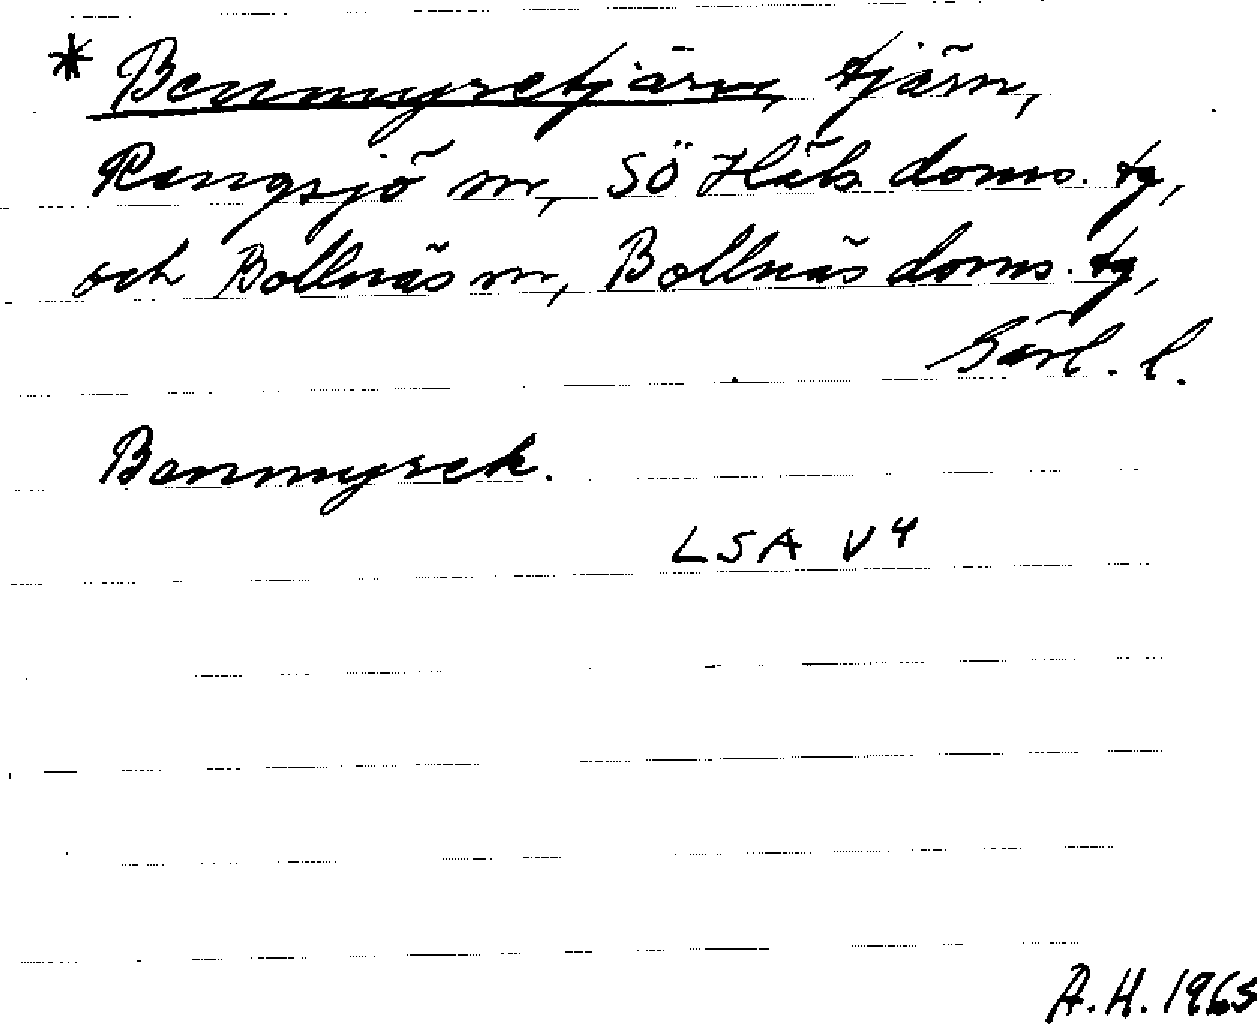 * Benmyretjärn, tjärn,
Rengsjö sn, SÖ Häls. doms. tg,
och Bollnäs sn, Bollnäs doms. tg,
Gävl. l.
Benmyrek.
LSA V4
A.H. 1965